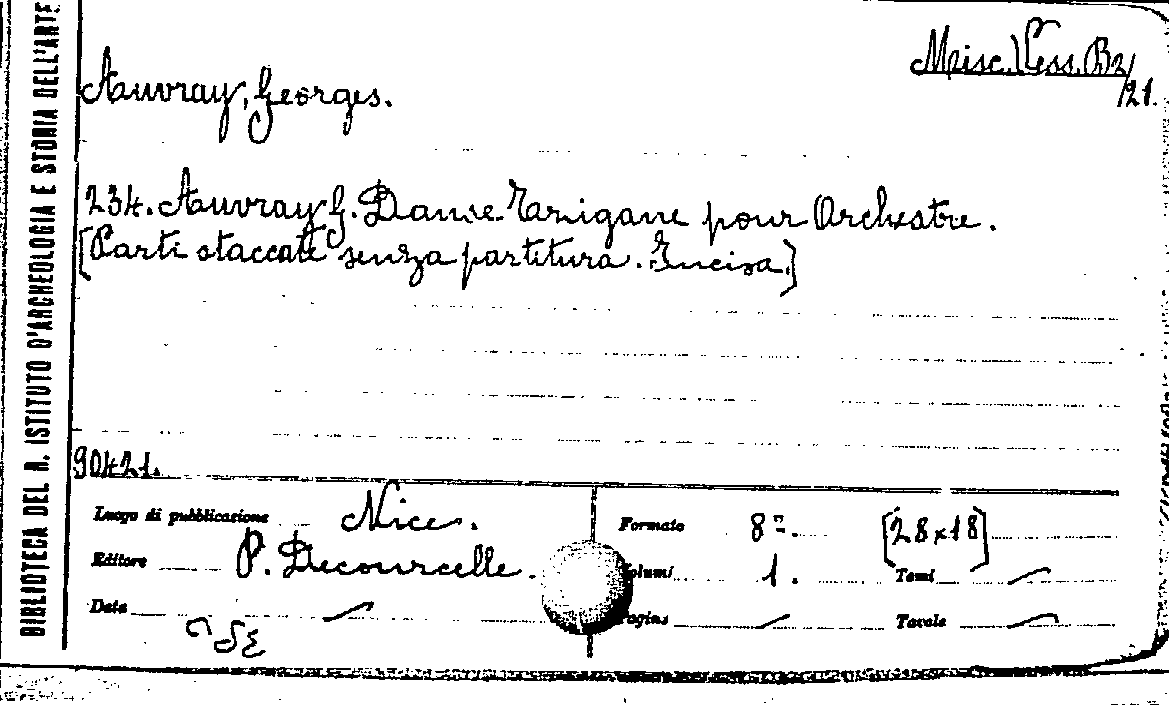 BIBLIOTECA DEL R. ISTITUTO D'ARCHEOLOGIA E STORIA DELL'ARTE
Misc. Vess. B2/21.
Auvray, Georges.
234. Auvray G. Danse Tzigane pour Orchestre.
[Parti staccate senza partitura. Incisa.]
90421.
Luogo di pubblicazione Nice.
Editore P. Decourcelle.
Data —
Formato 8º. [28×18]
Volumi 1. Tomi —
Pagine — Tavole —